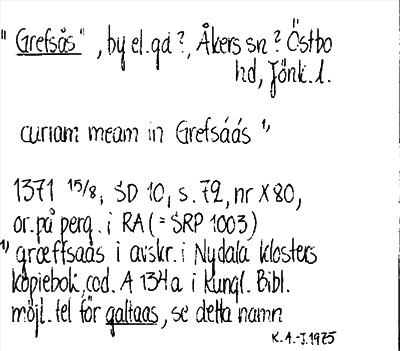 "Grefsås", by el. gd?, Åkers sn? Östbo
hd, Jönk. l.
curiam meam in Grefsáás ¹⁾
1371 15/8, SD 10, s. 72, nr X80,
or. på perg. i RA (= SRP 1003)
¹⁾ græffsaas i avskr. i Nydala klosters
kopiebok, cod. A 134a i Kungl. Bibl.
möjl. fel för galtaas, se detta namn
K.A.-J. 1975